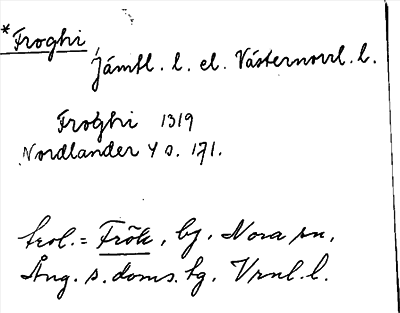 *Froghi
Jämtl. l. el. Västernorrl. l.
Froghi 1319
Nordlander 4 s. 171.
trol. = Frök, by, Nora sn,
Ång. s. doms. hg. Vrnl. l.